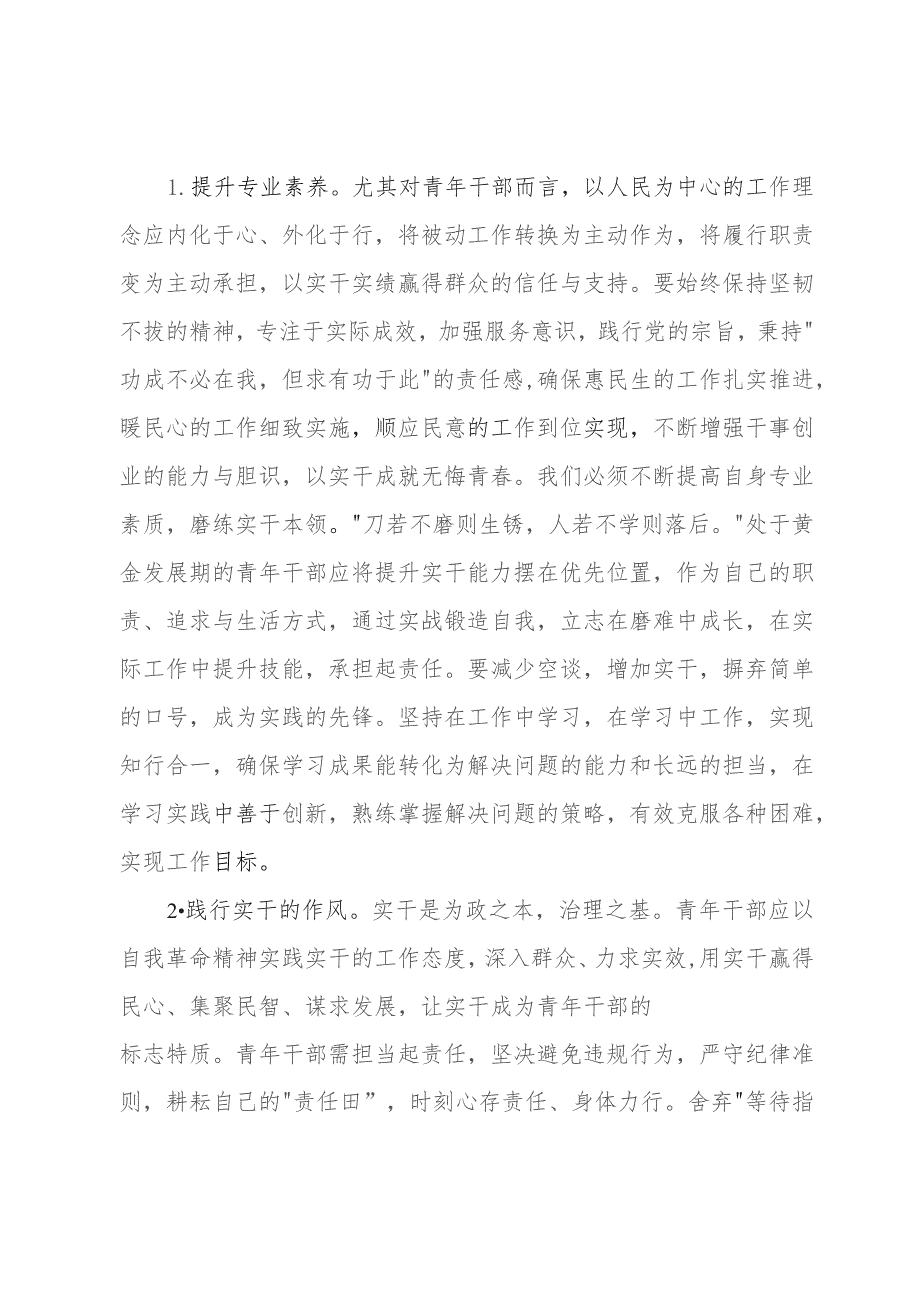 1. 提升专业素养。尤其对青年干部而言，以人民为中心的工作理
念应内化于心、外化于行，将被动工作转换为主动作为，将履行职责
变为主动承担，以实干实绩赢得群众的信任与支持。要始终保持坚韧
不拔的精神，专注于实际成效，加强服务意识，践行党的宗旨，秉持"
功成不必在我，但求有功于此"的责任感,确保惠民生的工作扎实推进，
暖民心的工作细致实施，顺应民意的工作到位实现，不断增强干事创
业的能力与胆识，以实干成就无悔青春。我们必须不断提高自身专业
素质，磨练实干本领。"刀若不磨则生锈，人若不学则落后。"处于黄
金发展期的青年干部应将提升实干能力摆在优先位置，作为自己的职
责、追求与生活方式，通过实战锻造自我，立志在磨难中成长，在实
际工作中提升技能，承担起责任。要减少空谈，增加实干，摒弃简单
的口号，成为实践的先锋。坚持在工作中学习，在学习中工作，实现
知行合一，确保学习成果能转化为解决问题的能力和长远的担当，在
学习实践中善于创新，熟练掌握解决问题的策略，有效克服各种困难，
实现工作目标。
2•践行实干的作风。实干是为政之本，治理之基。青年干部应以
自我革命精神实践实干的工作态度，深入群众、力求实效,用实干赢得
民心、集聚民智、谋求发展，让实干成为青年干部的
标志特质。青年干部需担当起责任，坚决避免违规行为，严守纪律准
则，耕耘自己的"责任田”，时刻心存责任、身体力行。舍弃"等待指